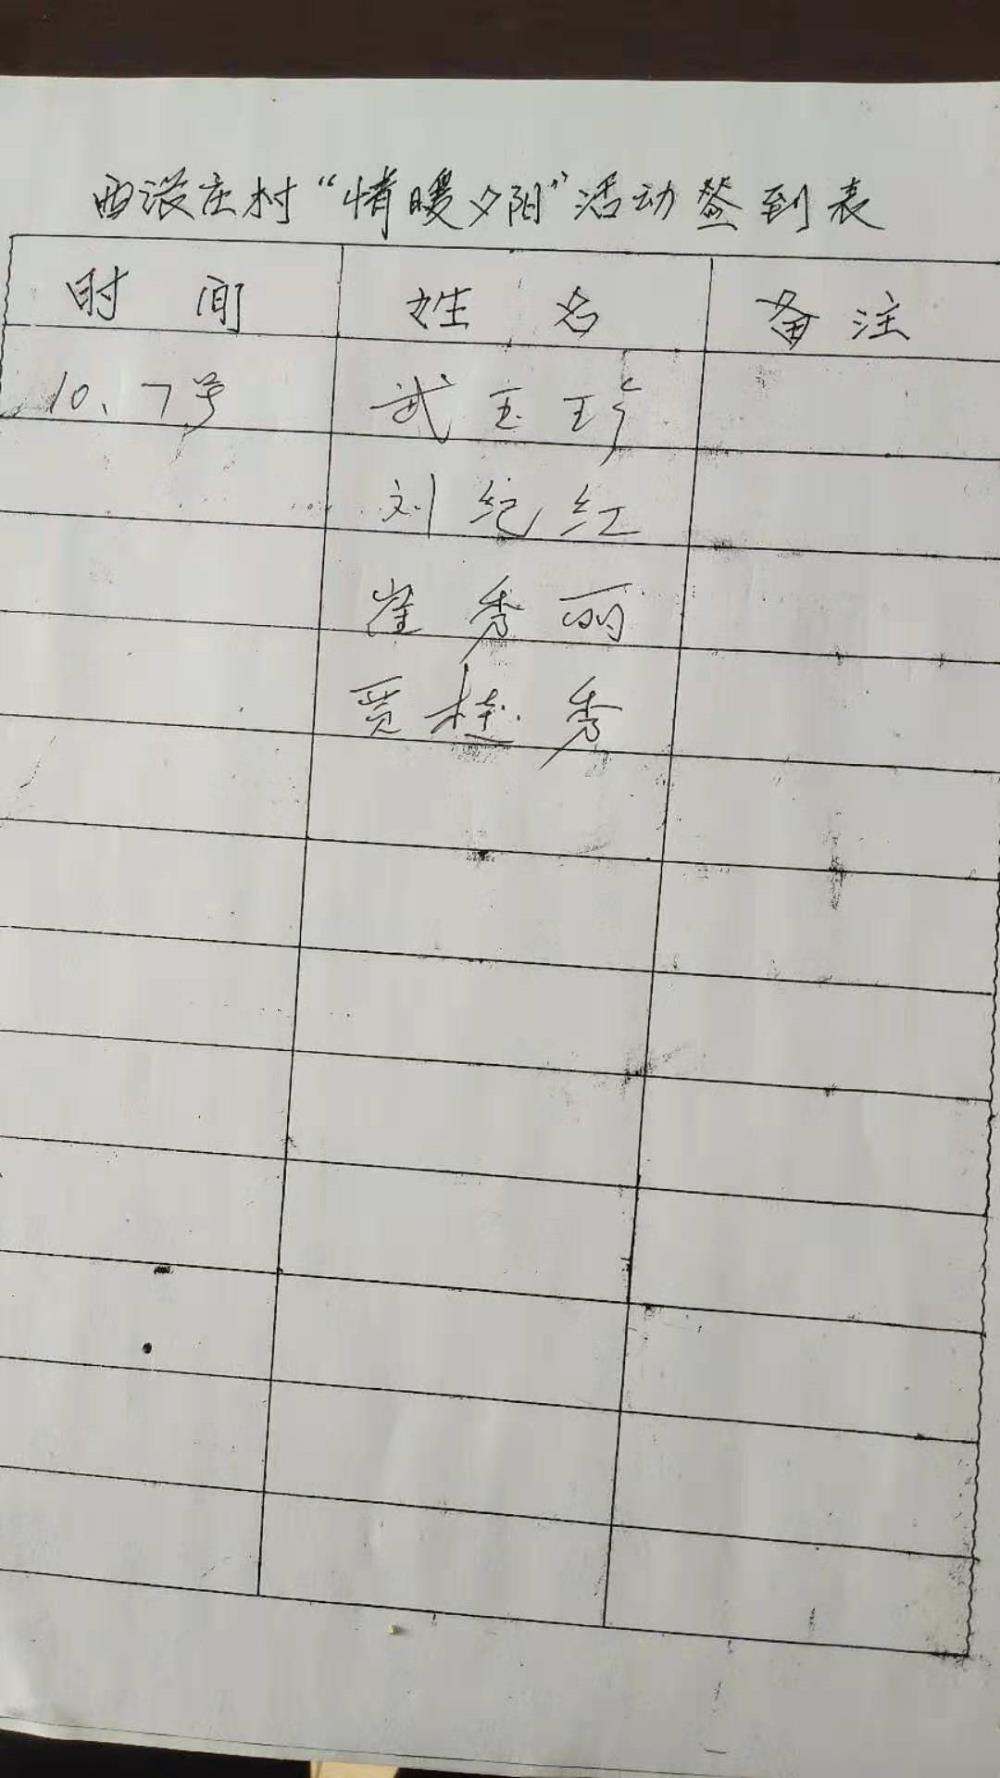 西 庄村“情暖夕阳”活动签到表
时间 姓名 备注
10、7号 武玉珍
刘纪红
崔秀丽
贾桂秀